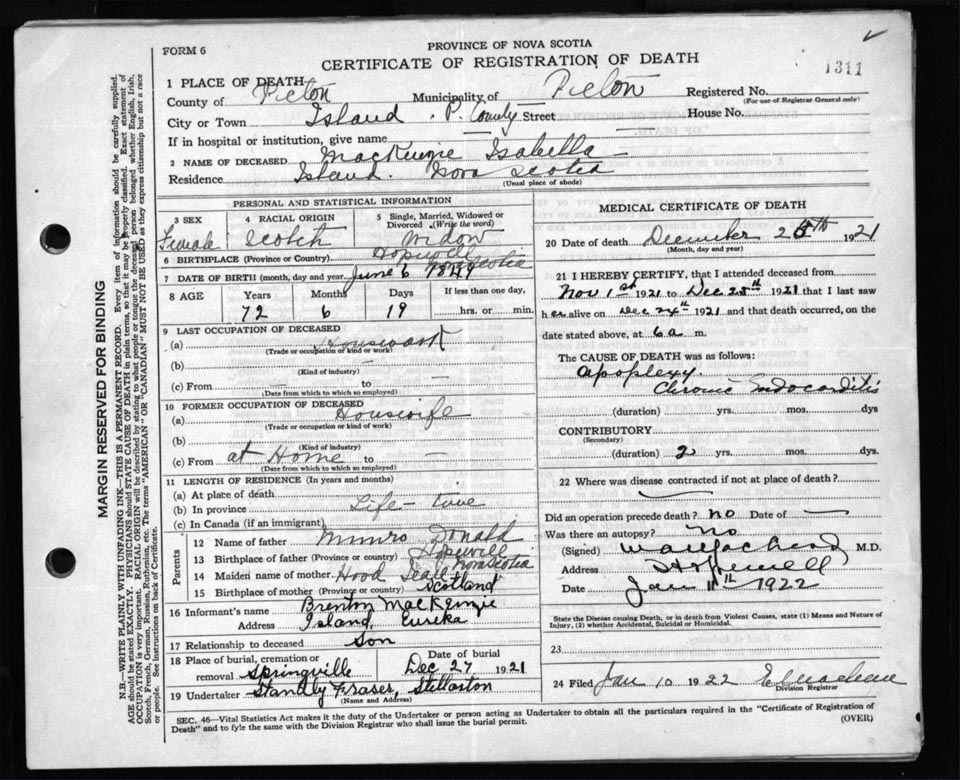 FORM 6
PROVINCE OF NOVA SCOTIA
CERTIFICATE OF REGISTRATION OF DEATH
1311
1 PLACE OF DEATH
County of Pictou Municipality of Pictou Registered No.
(For use of Registrar General only)
City or Town Island P. County Street House No.
If in hospital or institution, give name
2 NAME OF DECEASED MacKenzie Isabella
Residence Island. Nova Scotia
(Usual place of abode)
PERSONAL AND STATISTICAL INFORMATION
3 SEX Female
4 RACIAL ORIGIN Scotch
5 Single, Married, Widowed or Divorced (Write the word) Widow
6 BIRTHPLACE (Province or Country) Hopewell Nova Scotia
7 DATE OF BIRTH (month, day and year) June 6 1849
8 AGE Years Months Days If less than one day,
72 6 19 hrs. or min.
9 LAST OCCUPATION OF DECEASED
(a) Housework
(Trade or occupation or kind of work)
(b)
(Kind of industry)
(c) From — to —
(Date from which to which so employed)
10 FORMER OCCUPATION OF DECEASED
(a) Housewife
(Trade or occupation or kind of work)
(b)
(Kind of industry)
(c) From at Home to —
(Date from which to which so employed)
11 LENGTH OF RESIDENCE (In years and months)
(a) At place of death
(b) In province Life-time
(c) In Canada (if an immigrant)
Parents
12 Name of father Munro Donald
13 Birthplace of father (Province or country) Hopewell Nova Scotia
14 Maiden name of mother Hood
15 Birthplace of mother (Province or country) Scotland
16 Informant's name Brenton MacKenzie
Address Island, Eureka
17 Relationship to deceased Son
18 Place of burial, cremation or removal Springville
Date of burial Dec 27 1921
19 Undertaker Stanley Fraser, Stellarton
(Name and Address)
MEDICAL CERTIFICATE OF DEATH
20 Date of death December 25th 1921
(Month, day and year)
21 I HEREBY CERTIFY, that I attended deceased from
Nov 1st 1921 to Dec 25th 1921 that I last saw
her alive on Dec 24th 1921 and that death occurred, on the
date stated above, at 6 a m.
The CAUSE OF DEATH was as follows:
Apoplexy.
Chronic Endocarditis
(duration) yrs. mos. dys
CONTRIBUTORY
(Secondary)
(duration) 2 yrs. mos. dys.
22 Where was disease contracted if not at place of death?
Did an operation precede death? no Date of —
Was there an autopsy? No
(Signed) M.D.
Address Hopewell
Date Jan 11th 1922
State the Disease causing Death, or in death from Violent Causes, state (1) Means and Nature of
Injury, (2) whether Accidental, Suicidal or Homicidal.
23
24 Filed Jan 10 1922
Division Registrar
SEC. 46—Vital Statistics Act makes it the duty of the Undertaker or person acting as Undertaker to obtain all the particulars required in the "Certificate of Registration of
Death" and to fyle the same with the Division Registrar who shall issue the burial permit.
(OVER)
MARGIN RESERVED FOR BINDING
N.B.—WRITE PLAINLY WITH UNFADING INK—THIS IS A PERMANENT RECORD. Every item of information should be carefully supplied.
AGE should be stated EXACTLY. PHYSICIANS should STATE CAUSE OF DEATH in plain terms, so that it may be properly classified. Exact statement of
OCCUPATION is very important. RACIAL ORIGIN will be described by stating to what people or tongue the deceased person belonged whether English, Irish,
Scotch, French, German, Russian, Ruthenian, etc. The terms "AMERICAN" OR "CANADIAN" MUST NOT BE USED as they express citizenship but not a race
or people. See instructions on back of Certificate.